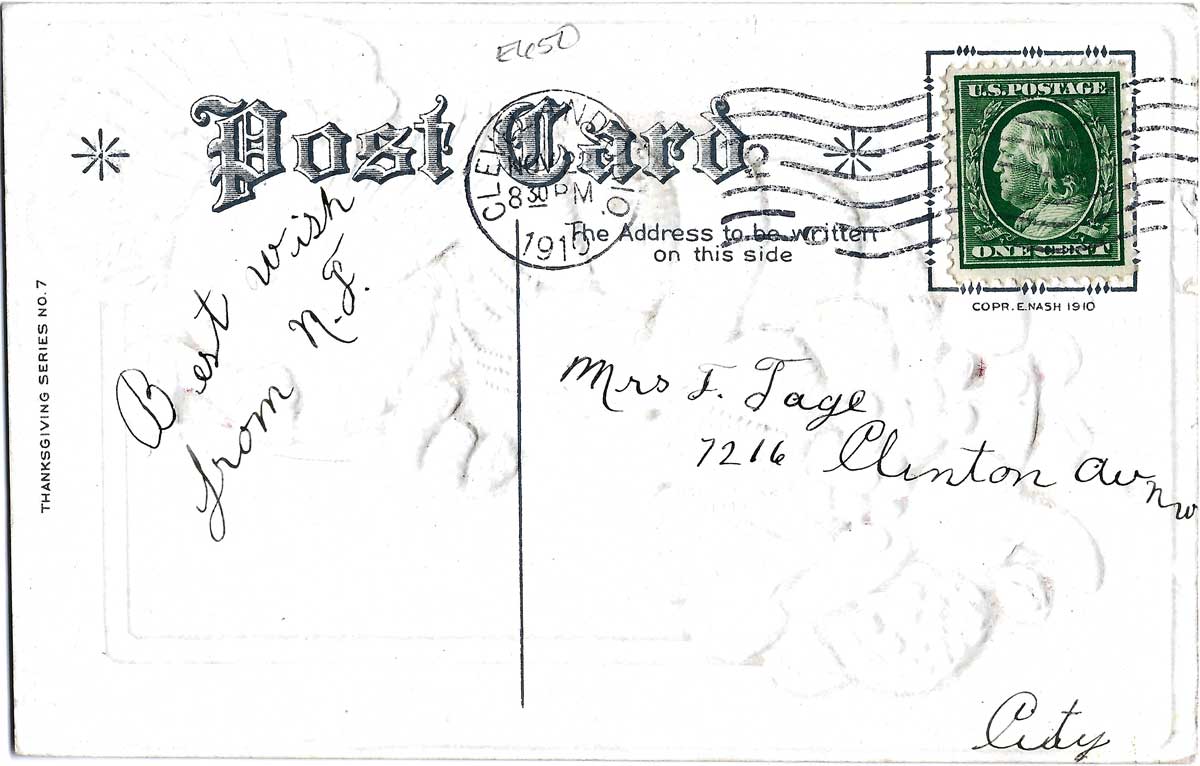 E650
Post Card
CLEVELAND, OHIO.
NOV
8 30 PM
1910
U.S. POSTAGE
ONE CENT
The Address to be written
on this side
COPR. E. NASH 1910
THANKSGIVING SERIES NO. 7
Best wish
from N.F.
Mrs F. Tage
7216 Clinton Av nw
City